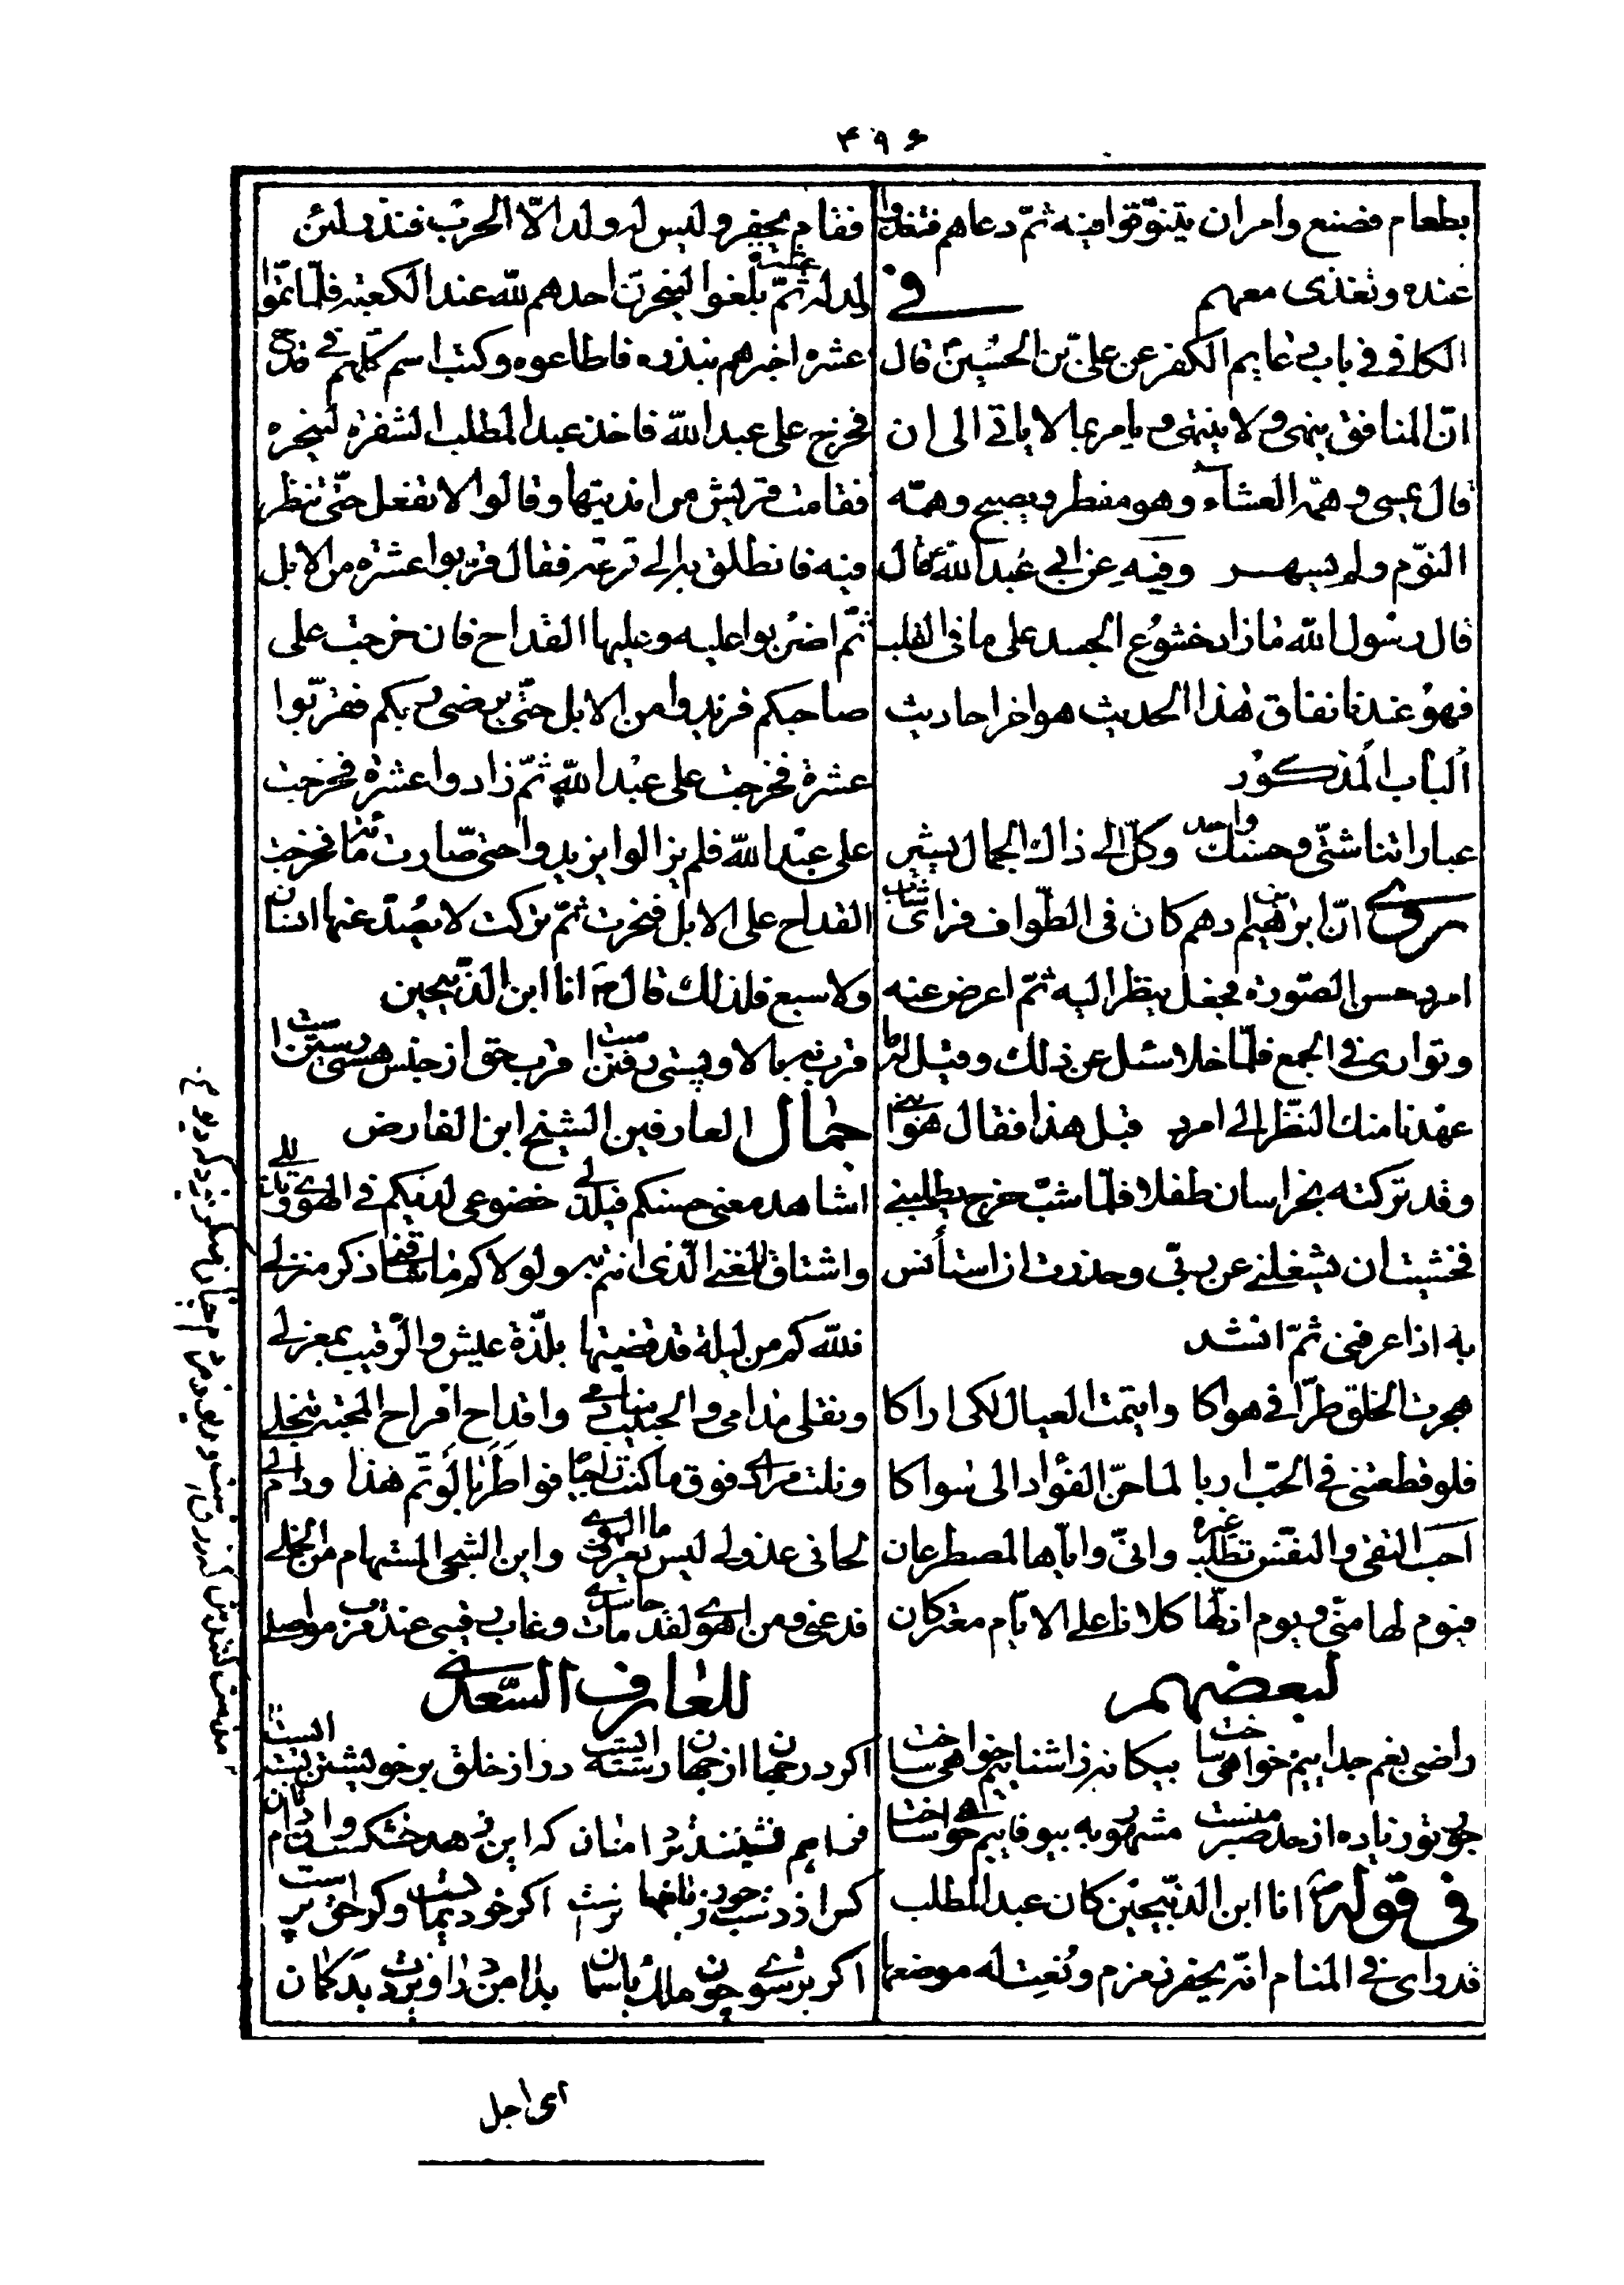 ۴۹۶
بطعام فصنع وامر ان يتنوّقوا فيه ثمّ دعاهم فتغدوا
عنده وتغذى معهم فى
الكافى فى باب دعايم الكفر عن علىّ بن الحسين قال
انّ المنافق ينهى ولا ينتهى ويامر بما لا ياتى الى ان
قال يمسى وهمّه العشآء وهو مفطر ويصبح وهمّه
النوّم ولم يسهر وفيه عن ابى عبد الله قال
قال رسول الله ما زاد خشوع الجسد على ما فى القلب
فهو عندنا نفاق هذا الحديث هو اخر احاديث
الباب المذكور
عباراتنا شتّى وحسنك واحد وكلّ الى ذاك الجمال يشير
روى انّ ابرهيم بن ادهم كان فى الطّواف فراى شابا
امرد حسن الصّورة فجعل ينظر اليه ثمّ اعرض عنه
وتوارى فى الجمع فلمّا خلا سئل عن ذلك وقيل له ما
عهدنا منك النّظر الى امرد قبل هذا فقال هو ابنى
وقد تركته بخراسان طفلا فلمّا شبّ خرج يطلبنى
فخشيت ان يشغلنى عن ربّى وحذرت ان استأنس
به اذا عرفنى ثمّ انشد
هجرت الخلق طرّا فى هواكا وايتمت العيال لكى اراكا
فلو قطعتنى فى الحبّ اربا لما حنّ الفؤاد الى سواكا
احبّ التقى والنفس تطلب غيره وانّى وايّاها لمصطرعان
فيوم لها منّى ويوم اذلّها كلانا على الايّام معتركان
لبعضهم
راضى بغم جداييم خواهى ساخت بيكانه ز اشناييم خواهى ساخت
جور تو زياده از حد صبر منست مشهور به بيوفاييم خواهى ساخت
فى قوله انا ابن الذبيحين كان عبد المطلب
قد راى فى المنام انّه يحفر زمزم ونُعِت له موضعها
فقام يحفر وليس له ولد الّا الحرث فنذر لئن
ولد له عشرة ثمّ بلغوا لينحرن احدهم لله عند الكعبة فلمّا تمّوا
عشرة اخبرهم بنذره فاطاعوه وكتب اسم كلّهم فى قدح
فخرج على عبد الله فاخذ عبد المطلب الشفرة لينحره
فقامت قريش من انديتها وقالوا لا تفعل حتّى تنظر
فيه فانطلق به الى فقال قرّبوا عشرة من الابل
ثمّ اضربوا عليه وعليها القداح فان خرجت على
صاحبكم فزيدوا من الابل حتّى يرضى ربكم فقرّبوا
عشرة فخرجت على عبد الله ثمّ زادوا عشرة فخرجت
على عبد الله فلم يزالوا يزيدوا حتى صارت مائة فخرجت
القداح على الابل فنحرت ثمّ تركت لا يصدّ عنها انسان
ولا سبع فلذلك قال انا ابن الذّبيحين
قرب نه بالا وپستى رفتن است قرب حق از جنس هستى رستن است
جمال العارفين الشيخ ابن الفارض
اشاهد معنى حسنكم فيلذّ لى خضوعى لديكم فى الهوى وتذللى
واشتاق للمغنى الّذى انتم به ولولاكم ما شاقنى ذكر منزلى
فلله كم من ليلة قد قضيتها بلذّة عيش والرّقيب بمعزل
ونقلى مدامى والحبيب منادمى واقداح افراح المحبة تنجلى
ونلت مرادى فوق ما كنت راجيا فوا طربا لو تمّ هذا ودام لى
لحانى عذولى ليس يعرف ما الهوى واين الشجى المستهام من الخلى
فدعنى ومن اهوى لقد مات حاسدى وغاب رقيبى عند قرب مواصلى
للعارف السّعدى
اكر در جهان از جهان رسته ايست در از خلق بر خويشتن بسته ايست
فراهم نشينند تر دامنان كه اين زهد خشكست وان دام نان
كس از دست جور زبانها نرست اكر خود نمايست وكر حق پرست
اكر بر پرى چون ملك ز اسمان بدامن در اويزدت بد كمان
اى اجل